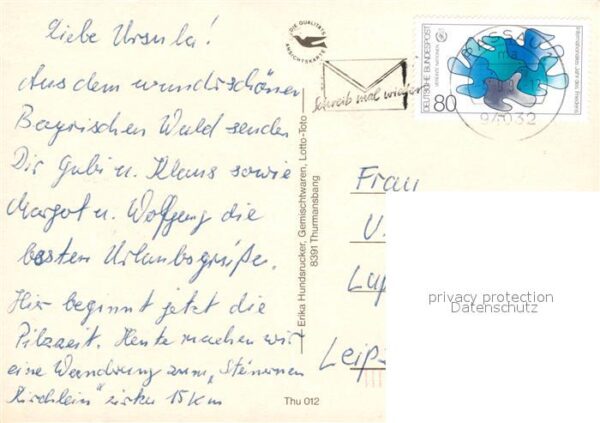 Liebe Ursula!
Aus dem wundschönen
Bayrischen Wald senden
Dir Gabi u. Klaus sowie
Margot u. Wolfgang die
besten Urlaubsgrüße.
Hier beginnt jetzt die
Pilzzeit. Heute machen wir
eine Wandrung zum „Steinernen
Kirchlein" zirka 15 Km
DIE QUALITÄTS
ANSICHTSKARTE
Schreib mal wieder
PASSAU
94032
DEUTSCHE BUNDESPOST
VEREINTE NATIONEN
80
Internationales Jahr des Friedens
Erika Hundsrucker, Gemischtwaren, Lotto-Toto
8391 Thurmansbang
Thu 012
Frau
U.
Leip
privacy protection
Datenschutz